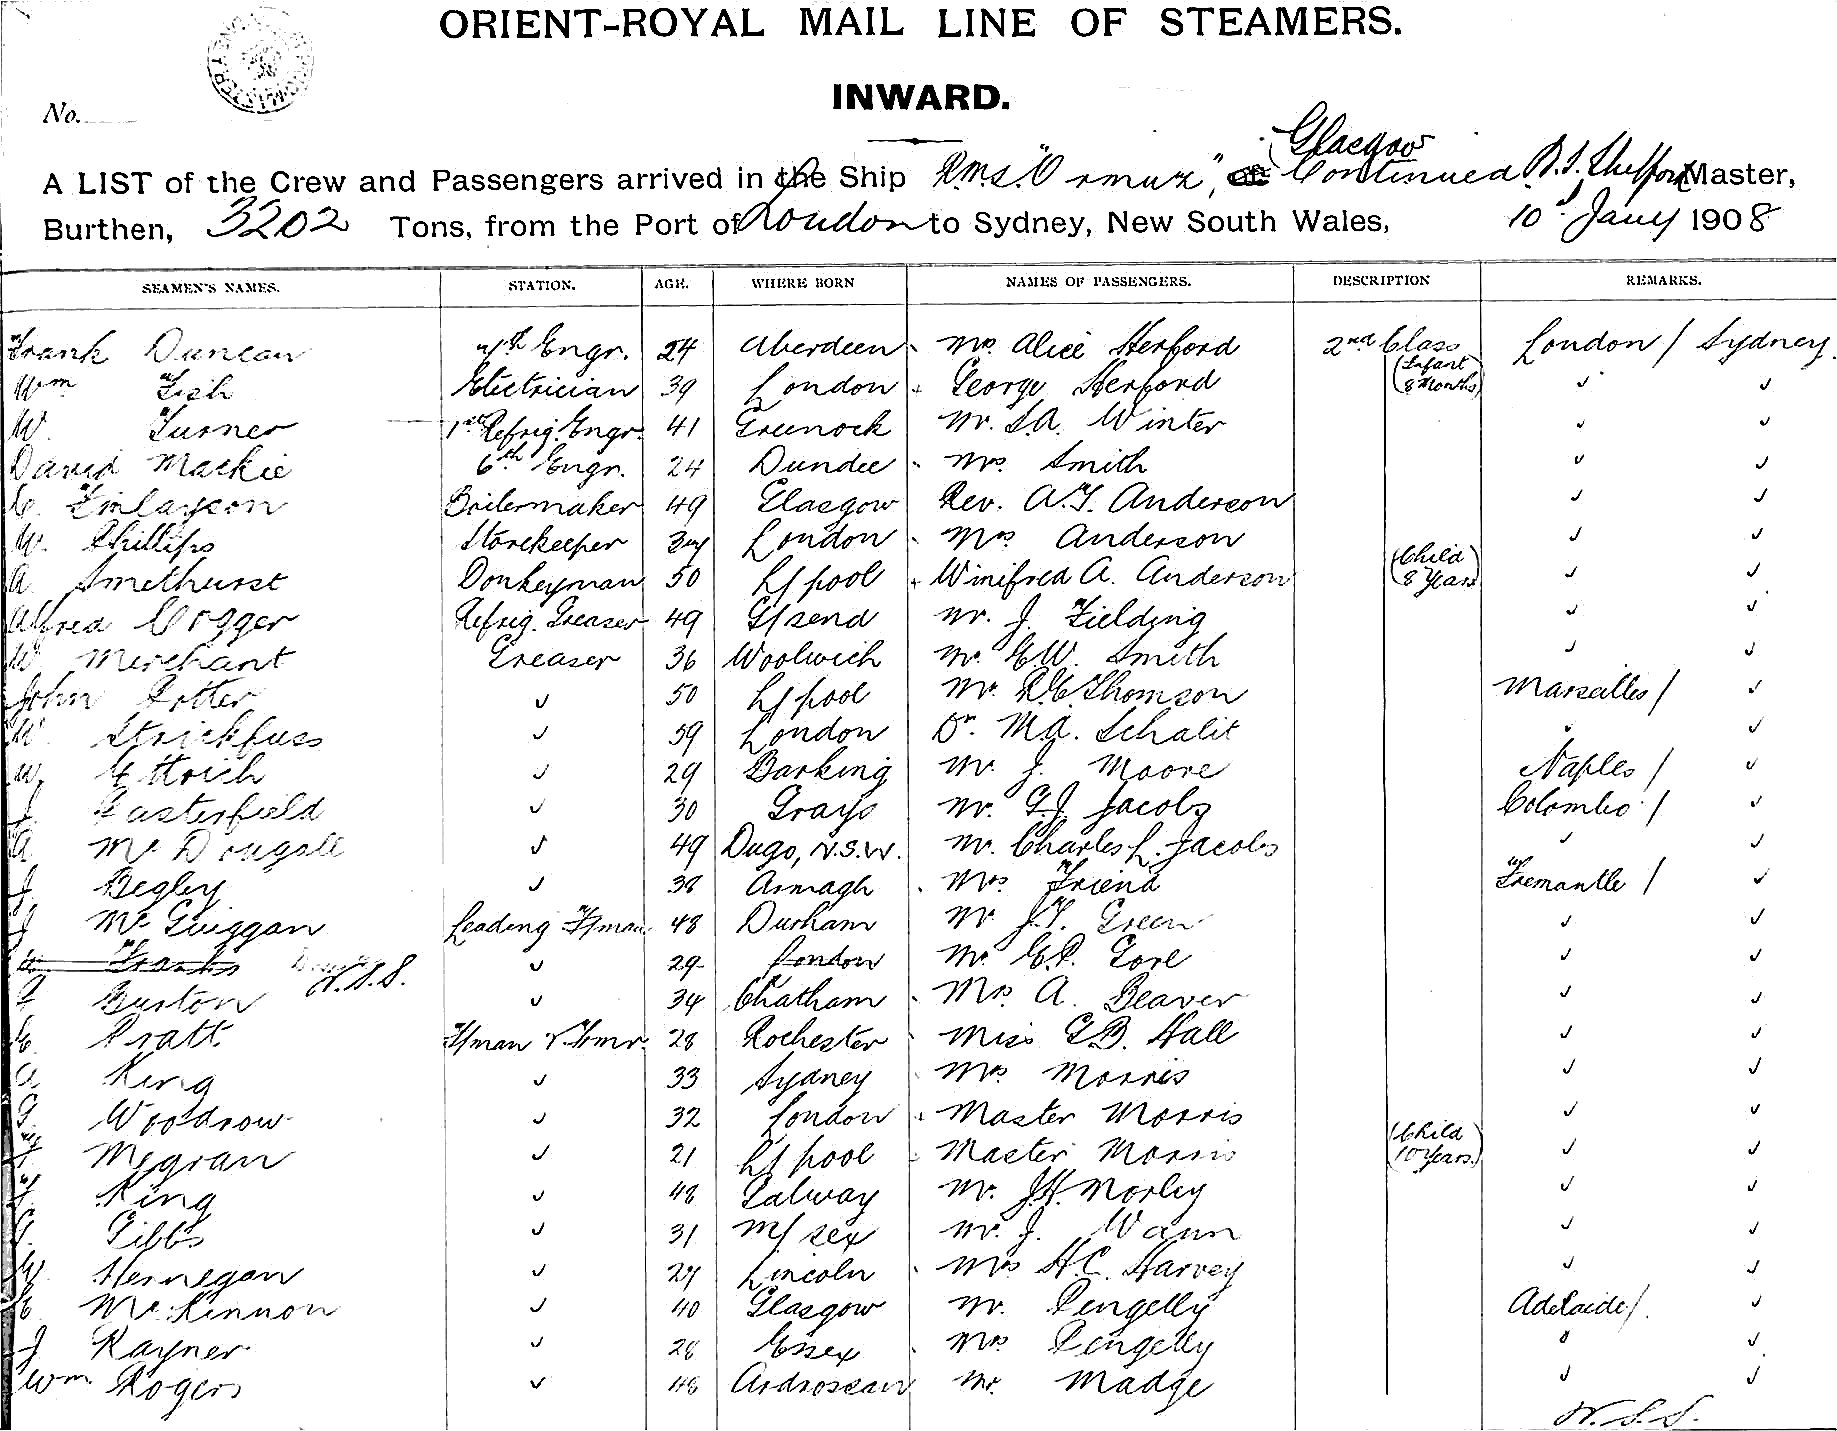 ORIENT-ROYAL MAIL LINE OF STEAMERS.
INWARD.
No.
Glasgow
A LIST of the Crew and Passengers arrived in the Ship R.M.S. "Ormuz", of Continued Master,
Burthen, 3202 Tons, from the Port of London to Sydney, New South Wales, 10 Jany 1908
SEAMEN'S NAMES. STATION. AGE. WHERE BORN NAMES OF PASSENGERS. DESCRIPTION REMARKS.
Frank Duncan 4th Engr. 24 Aberdeen Mrs. Alice Herford 2nd Class London / Sydney
Wm Fish Electrician 39 London George Herford (Infant 8 Months) " "
W. Turner 1st Refrig. Engr. 41 Greenock Mr. S.A. Winter " "
David Mackie 6th Engr. 24 Dundee Mrs. Smith " "
C. Finlayson Boilermaker 49 Glasgow Rev. A.T. Anderson " "
W. Phillips Storekeeper 37 London Mrs Anderson " "
A. Smethurst Donkeyman 50 L/pool Winifred A. Anderson (Child 8 Years) " "
Alfred Cogger Refrig. Greaser 49 G/send Mr. J. Fielding " "
W. Merchant Greaser 36 Woolwich Mr. E.W. Smith " "
John Potter " 50 L/pool Mr. R.C. Thomson Marseilles / "
W. Strickfuss " 59 London Dr. M.A. Schalit " "
W. Ettrich " 29 Barking Mr. J. Moore Naples / "
J. Easterfield " 30 Grays Mr. G.J. Jacobs Colombo / "
A. McDougall " 49 N.S.W. Mr. Charles L. Jacobs " "
J. Begley " 38 Armagh Mrs Friend Fremantle / "
J. McGuiggan Leading F/man 48 Durham Mr J.T. Green " "
Franks " 29 London Mr E.P. Gore " "
Burston " 34 Chatham Mrs A. Beaver " "
C. Pratt F/man & Trmr. 28 Rochester Miss G.B. Hall " "
King " 33 Sydney Mrs Morris " "
G. Woodrow " 32 London Master Morris " "
Megran " 21 L/pool Master Morris (Child 10 Years.) " "
King " 48 Galway Mr. J.H. Morley " "
G. Gibbs " 31 M/sex Mr. J. Wann " "
Hennegan " 27 Lincoln Mrs H.C. Harvey " "
McKinnon " 40 Glasgow Mr. Pengelly Adelaide / "
J. Rayner " 28 Essex Mrs Pengelly " "
Wm. Rogers " 48 Ardrossan Mr. Madge " "